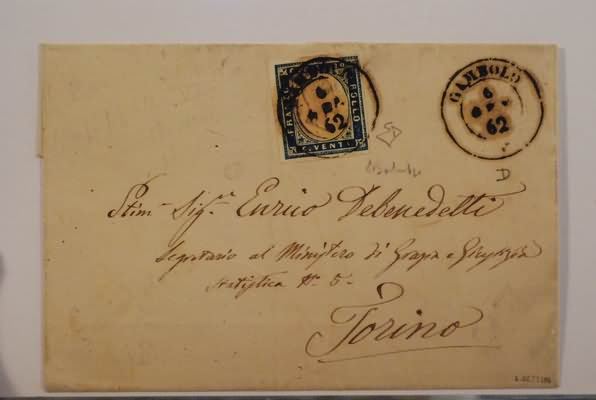 FRANCO
BOLLO
C. VENTI
6
62
GAMBOLO
6
62
D
Stim. Sig.r Enrico Debenedetti
Segretario al Ministero di Grazia e
Statistica No. 5.
Torino